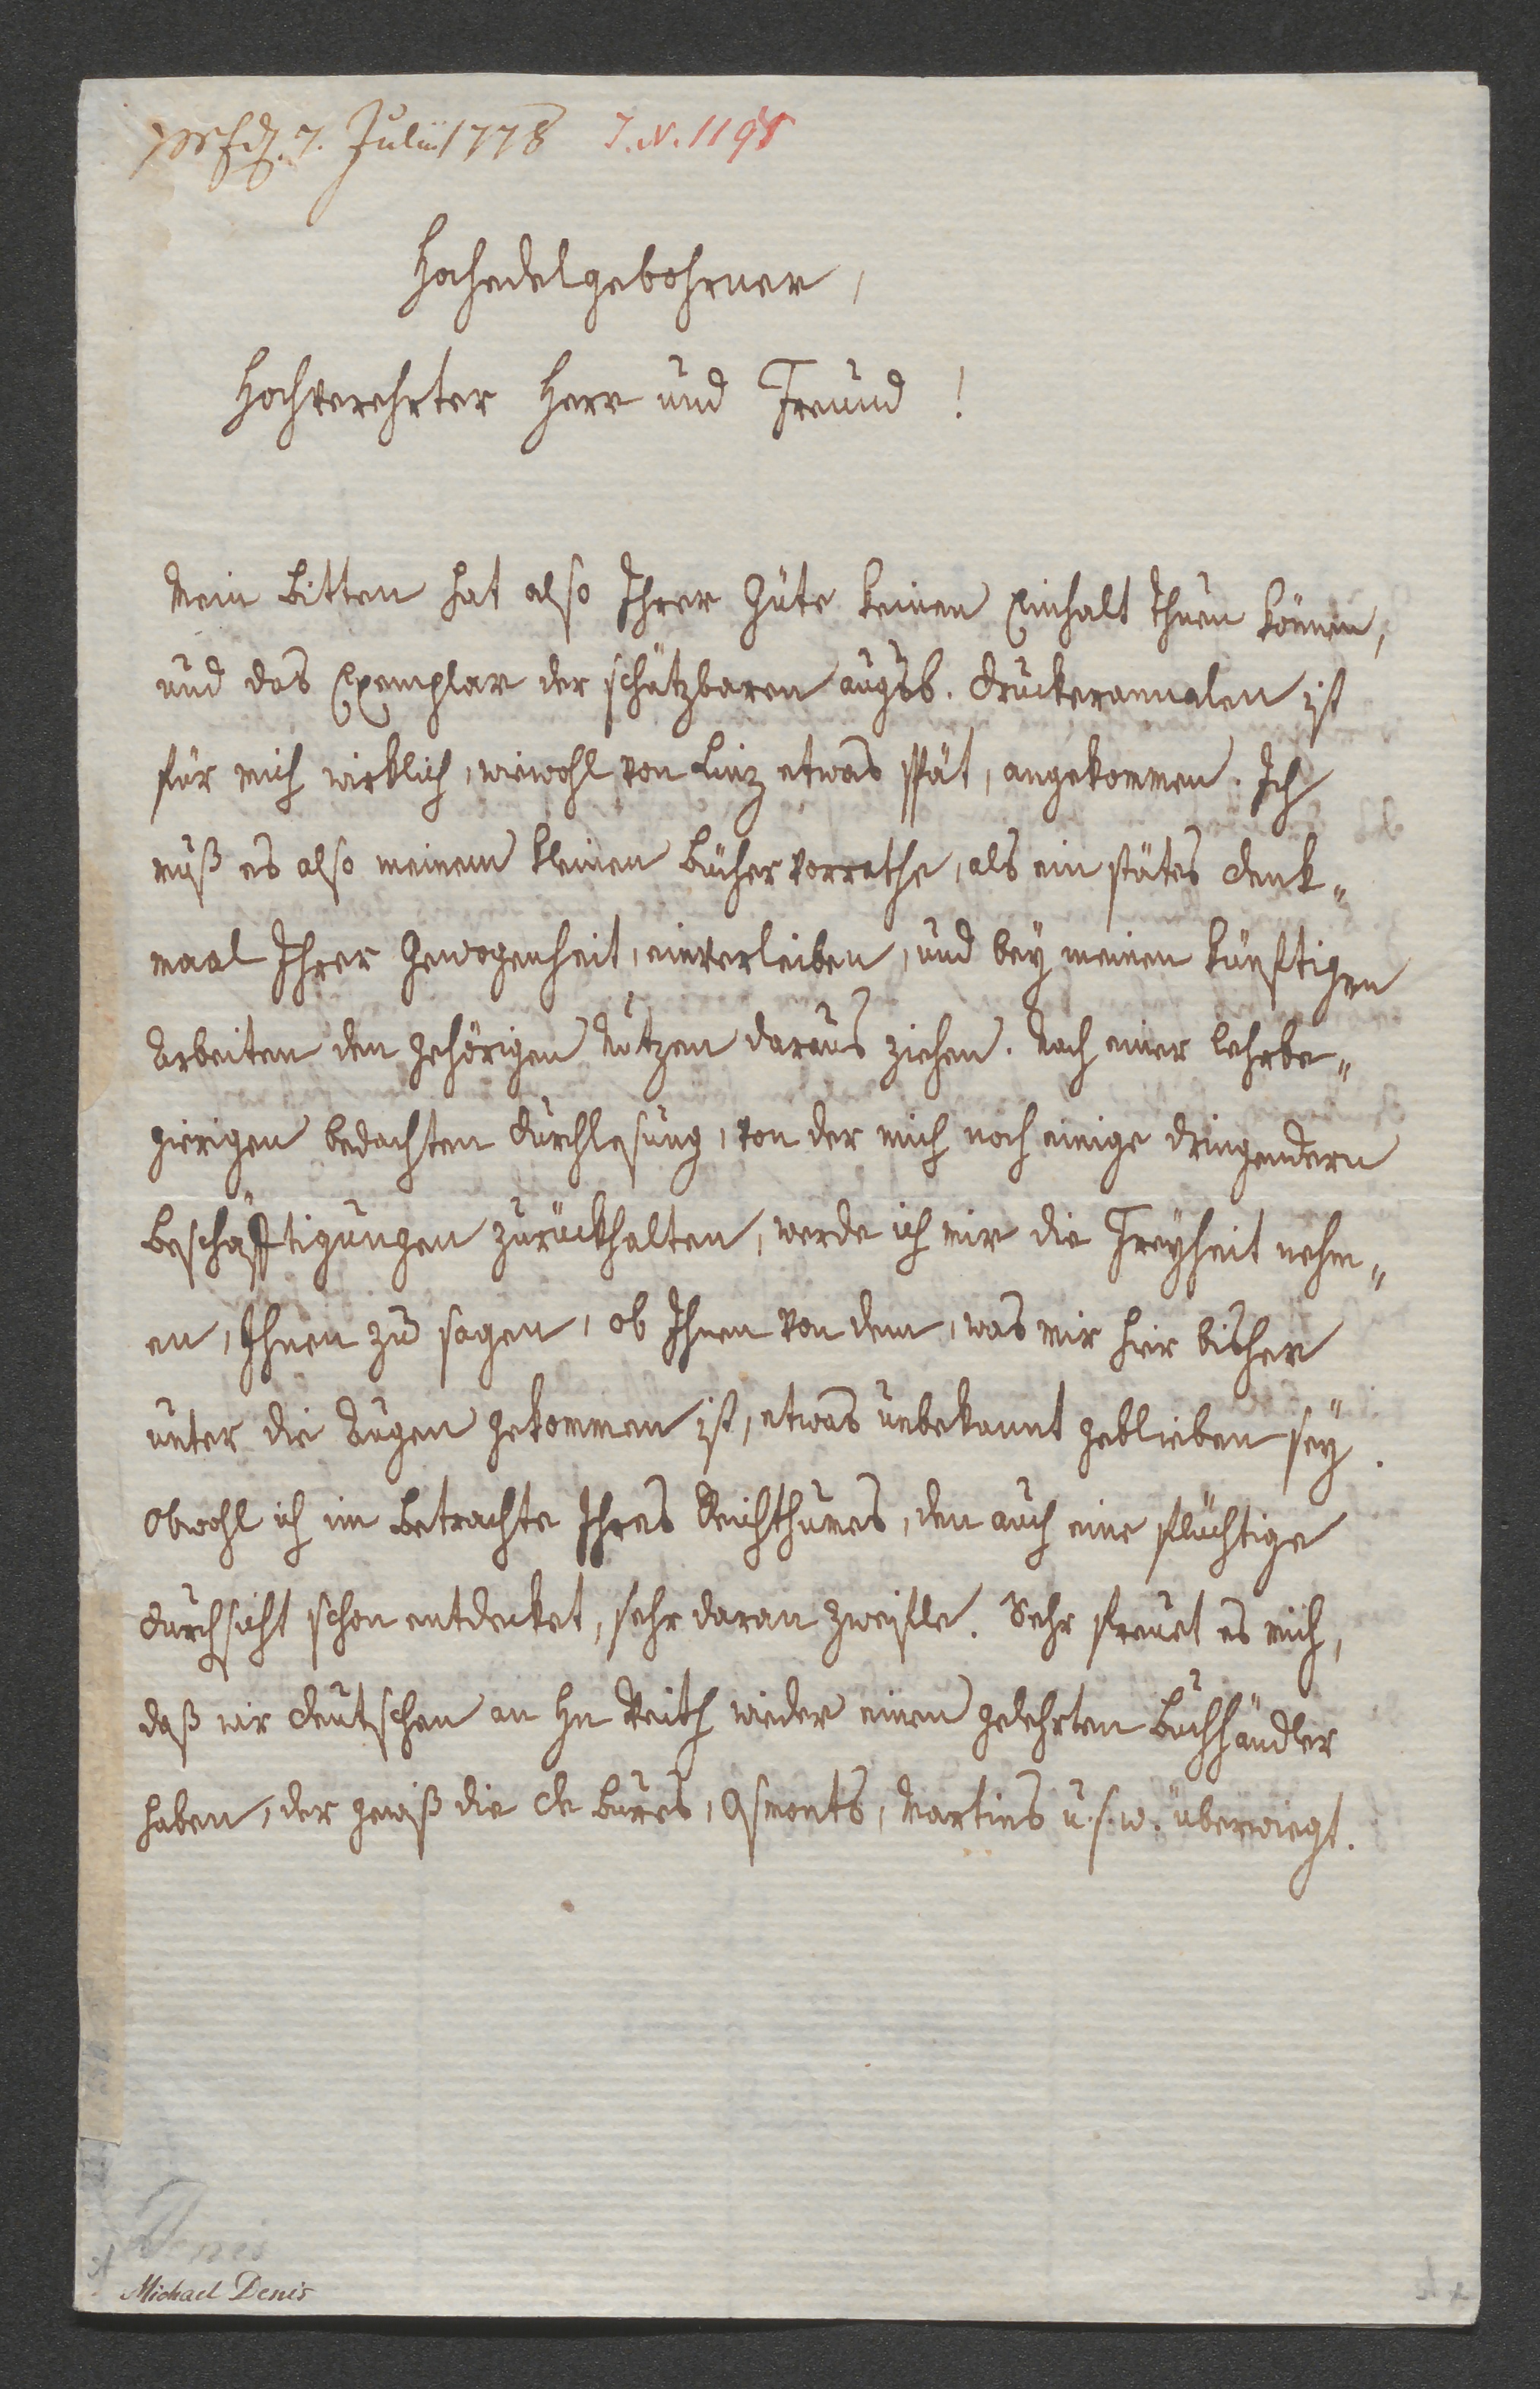 7. Julii 1778 I.N. 1198
Hochedelgebohrner,
Hochverehrter Herr und Freund!
Mein Bitten hat also Ihrer Güte keinen Einhalt thuen können,
und das Exemplar der schätzbaren augsb. Druckerannalen ist
für mich wirklich, wiewohl von Linz etwas spät, angekommen. Ich
muß es also meinem kleinen Büchervorrathe, als ein stätes Denk„
maal Ihrer Gewogenheit, einverleiben, und bey meinen künftigen
Arbeiten den gehörigen Nutzen daraus ziehen. Nach einer lehrbe„
gierigen bedachten Durchlesung, von der mich noch einige dringendern
Beschäftigungen zurückhalten, werde ich mir die Freyheit nehm„
en, Ihnen zu sagen, ob Ihnen von dem, was mir hier bisher
unter die Augen gekommen ist, etwas unbekannt geblieben sey.
Obwohl ich im Betrachte Ihres Reichthumes, den auch eine flüchtige
Durchsicht schon entdecket, sehr daran zweifle. Sehr freuet es mich,
daß wir Deutschen an Hn Veith wieder einen gelehrten Buchhändler
haben, der gewiß die de Bures, Osmonts, Martins u.s.w. überwiegt.
Denis
Michael Denis